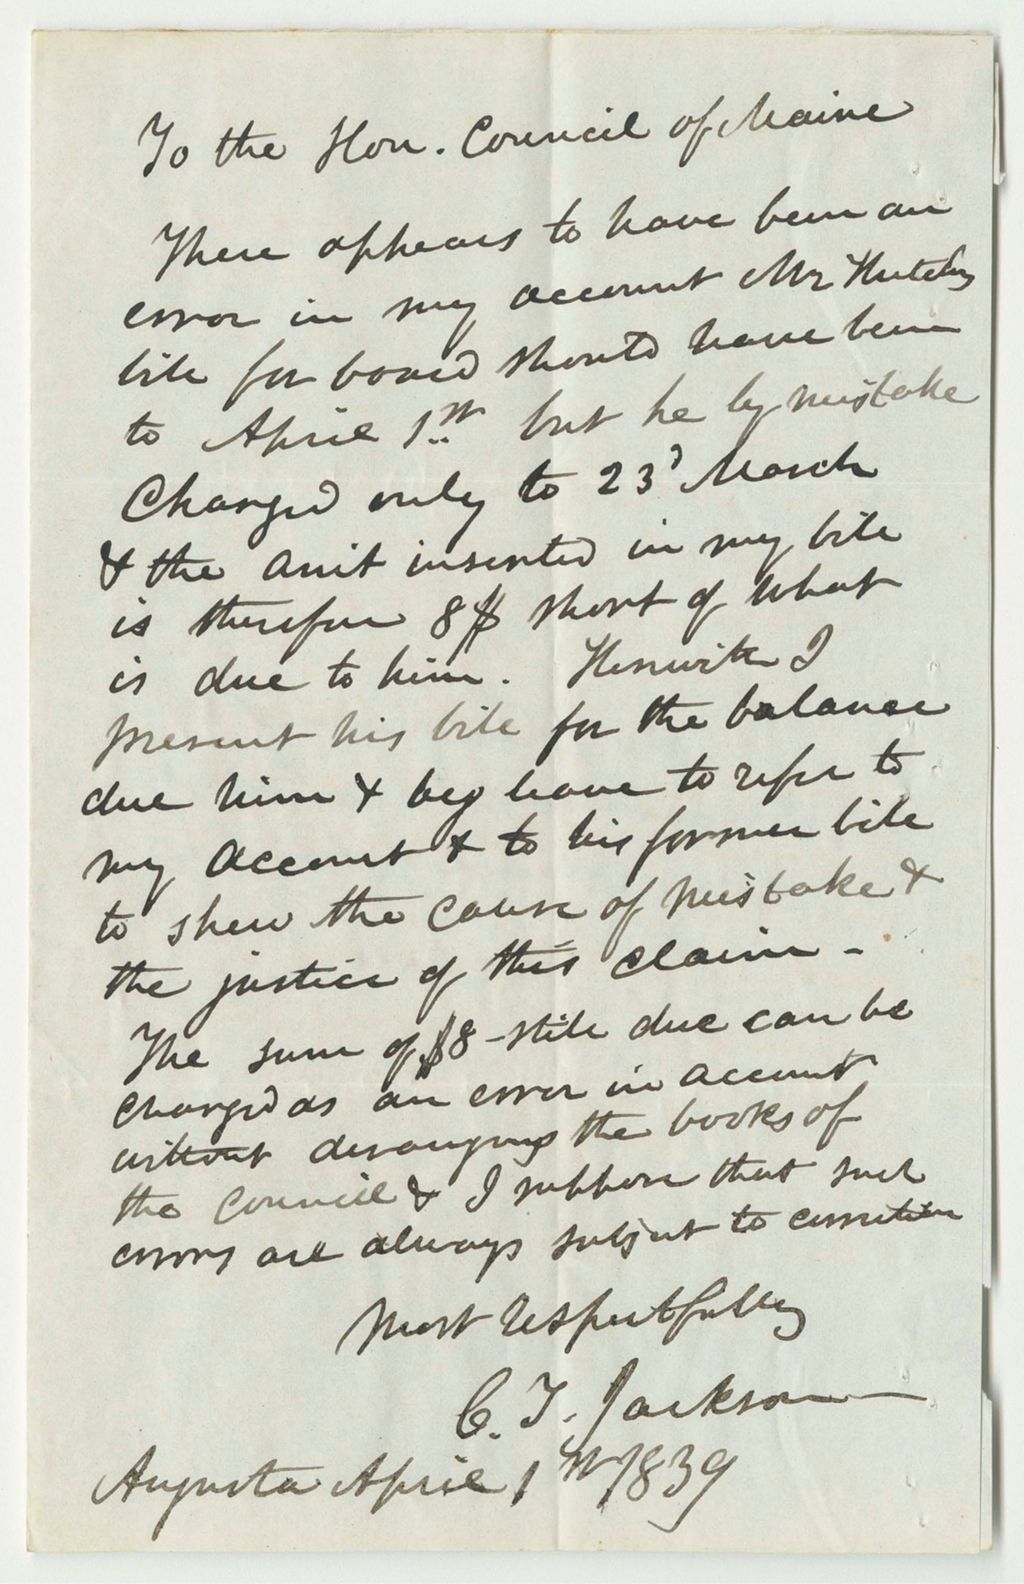 To the Hon. Council of Maine
There appears to have been an
error in my account Mr Hutchins
bill for board should have been
to April 1st but he by mistake
Charged only to 23d March
& the amt inserted in my bill
is therefore 8$ short of what
is due to him. Herewith I
present his bill for the balance
due him & beg leave to refer to
my account & to his former bill
to shew the cause of mistake &
the justice of this claim -
The sum of $8 - still due can be
charged as an error in account
without deranging the books of
the Council & I suppose that such
errors are always subject to correction
Most respectfully
C. T. Jackson
Augusta April 1st 1839